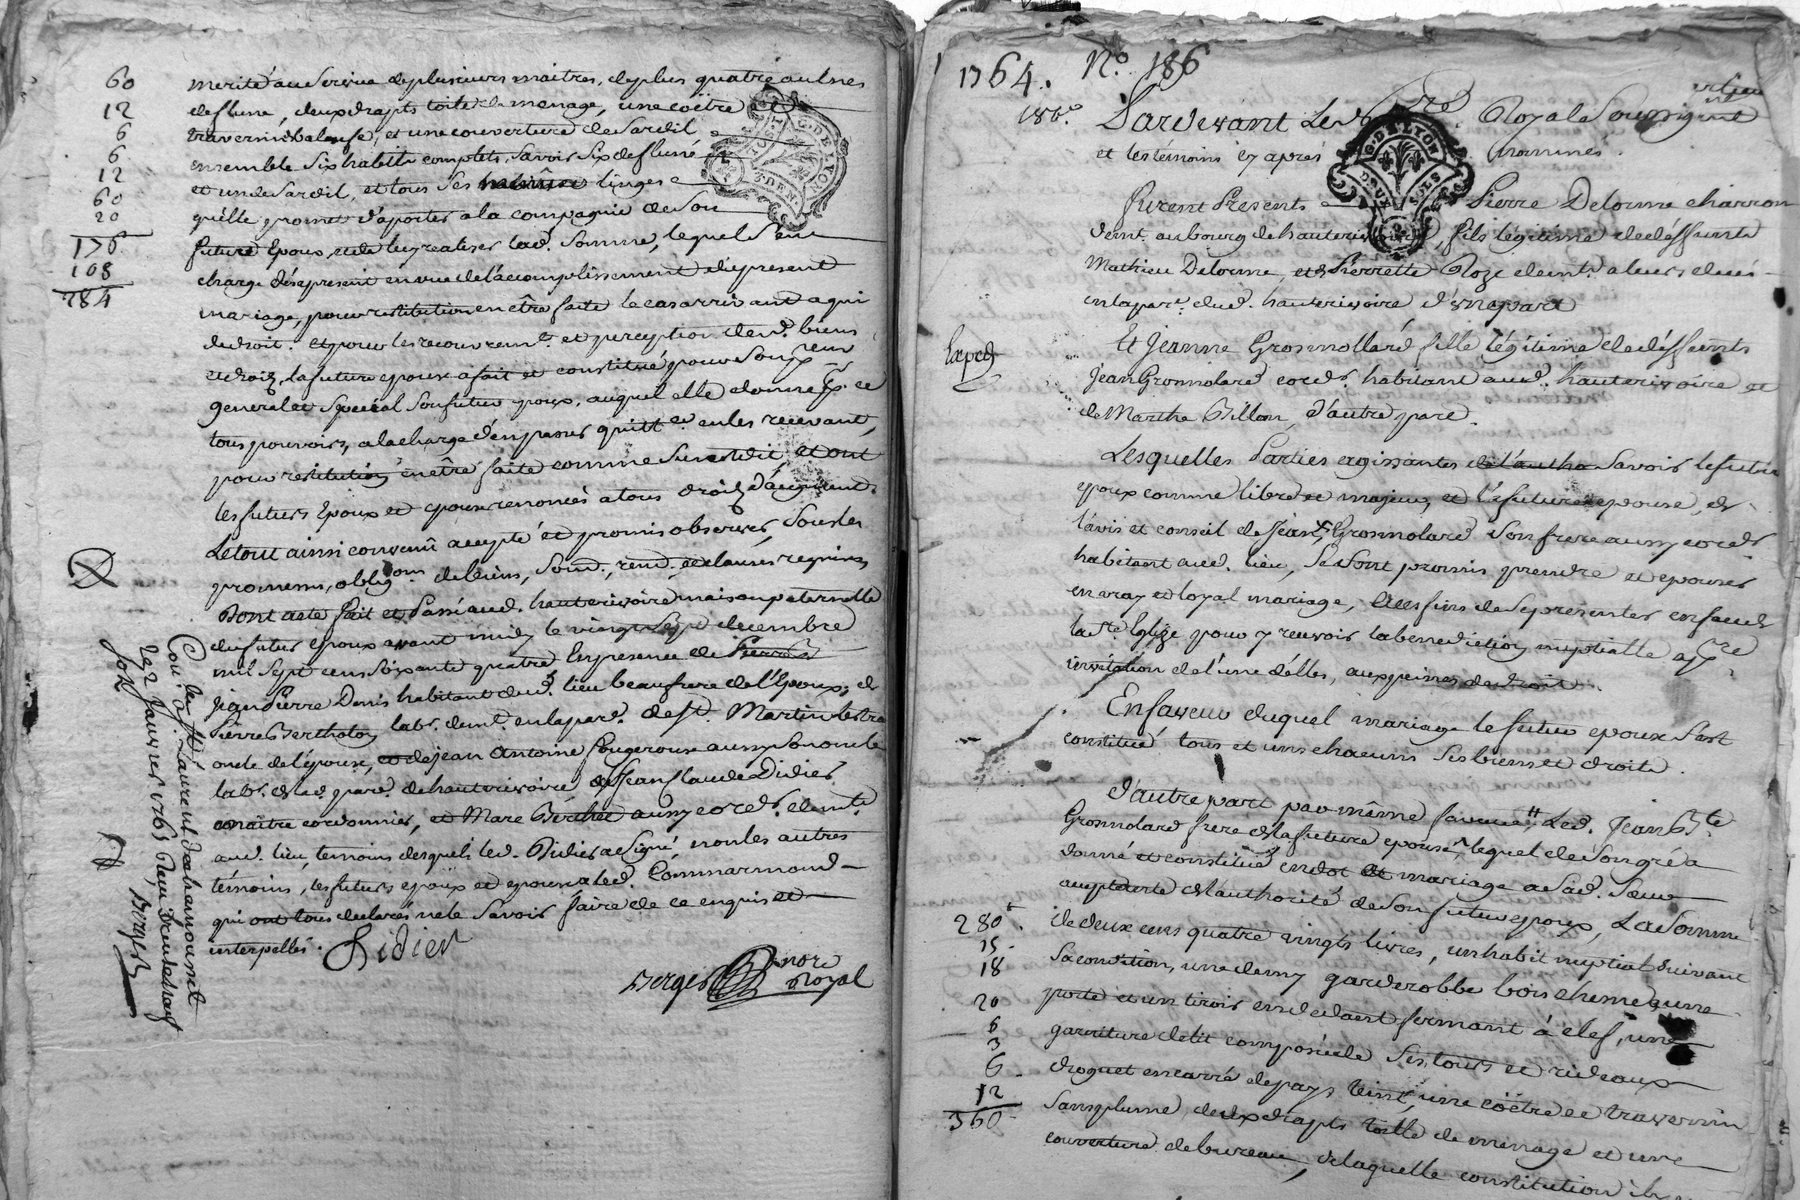 60
12
6
6
12
60
20
176
108
284
merité au service de plusieurs maitres, de plus quatre aulnes
de flune, deux drapts toile de menage, une coëtre et
travernier balouse, et une couverture de Sardil
ensemble Six habits complets, Savoir Six de fluné
et un de Sardil, et tous Ses linges
qu'elle promet d'aporter a la compagnie de Son
futur Epoux, et de luy realiser lad. Somme, lequel S'en
charge dés apresent en vue de l'accomplissement du present
mariage, pour restitution en être faite le cas arrivant a qui
de droit. et pour les recouvremt. et perception desd. biens
et droits, la future epouse a fait et constitué pour Son preur
general et Special Son futur epoux, auquel elle donne pr. ce
tous pouvoirs, a la charge d'en passer quittce. en les recevant,
pour restitution en être faite comme Susdit et ont
les futurs Epoux et epouse renoncés a tous droits d'augment.
Le tout ainsi convenû accepté et promis observer, Sous les
promesses, obligons de biens, Soud., rend. et clauses requises
Dont acte fait et Passé aud. hauterivoire maison paternelle
du futur Epoux avant midy le vingt Sept decembre
mil Sept cens Soixante quatre En presence de
Jean Pierre Denis habitant dud. lieu beaufrere de l'Epoux, de
Pierre Bertholon labr. demt. en la par. de st. Martin lestra
oncle de l'épouse, de jean Antoine Fougerouse aussy Son oncle
labr. de lad. par. de hauterivoire de Jean Claude Didier
maître cordonnier, et Marc Berthet aussy cordr. demts.
aud. lieu, temoins desquels led. Didier a Signé, non les autres
témoins, les futurs epoux et epouse a led. Commarmond
qui ont tous declarés ne le Savoir faire de ce enquis et
interpellés. Didier
Berger nore Royal
Con. a St. Laurent de chamousset
le 2 Janvier 1765
Berger
G. DE LYON
3 DEN.
1764. No. 186
186e
Pardevant Le nore Royal Soussigné
et les témoins cy aprés nommés.
G. DE LYON
DEUX SOLS
Furent Presents Pierre Delorme charron
demt. au bourg de hauterivoire, fils légitime de deffunt
Mathieu Delorme, et de Pierrette Roze demts. a leurs
en la par. dud. hauterivoire d'une part
Exped.
Et Jeanne Grosmollard fille légitime de deffunts
Jean Grosmolard cordr. habitant aud. hauterivoire et
de Marthe Billon, d'autre part.
Lesquelles Parties agissantes Savoir le futur
epoux comme libre et majeur, et la future epouse, de
l'avis et conseil de Jean Grosmolard Son frere aussy cordr.
habitant aud. lieu, Se Sont promis prendre et epouser
en vray et loyal mariage, a ces fins de Se presenter en face de
la ste. Eglize pour y recevoir la benediction nuptialle a pre.
invitation de l'une d'elles, aux peines de droit.
En faveur duquel mariage le futur epoux S'est
constitué tous et uns chacuns Ses biens et droits.
D'autre part par même faveur Led. Jean Bte.
Grosmolard frere de la future epouse, lequel de Son gré a
donné et constitué en dot et mariage a Sad. Sœur
acceptante de l'authorité de Son futur epoux, La Somme
280
15
18
20
6
3
6
12
360
de deux cens quatre vingts livres, un habit nuptial Suivant
Sa condition, une demy garderobbe bois cheme à une
porte et un tiroir en dedant fermant à clef, une
garniture de lit composée de Ses tours et rideaux
droguet en carré de pays teint, une coëtre et travernier
Sans plume, deux drapts toille de menage et une
couverture de bureau, de laquelle constitution